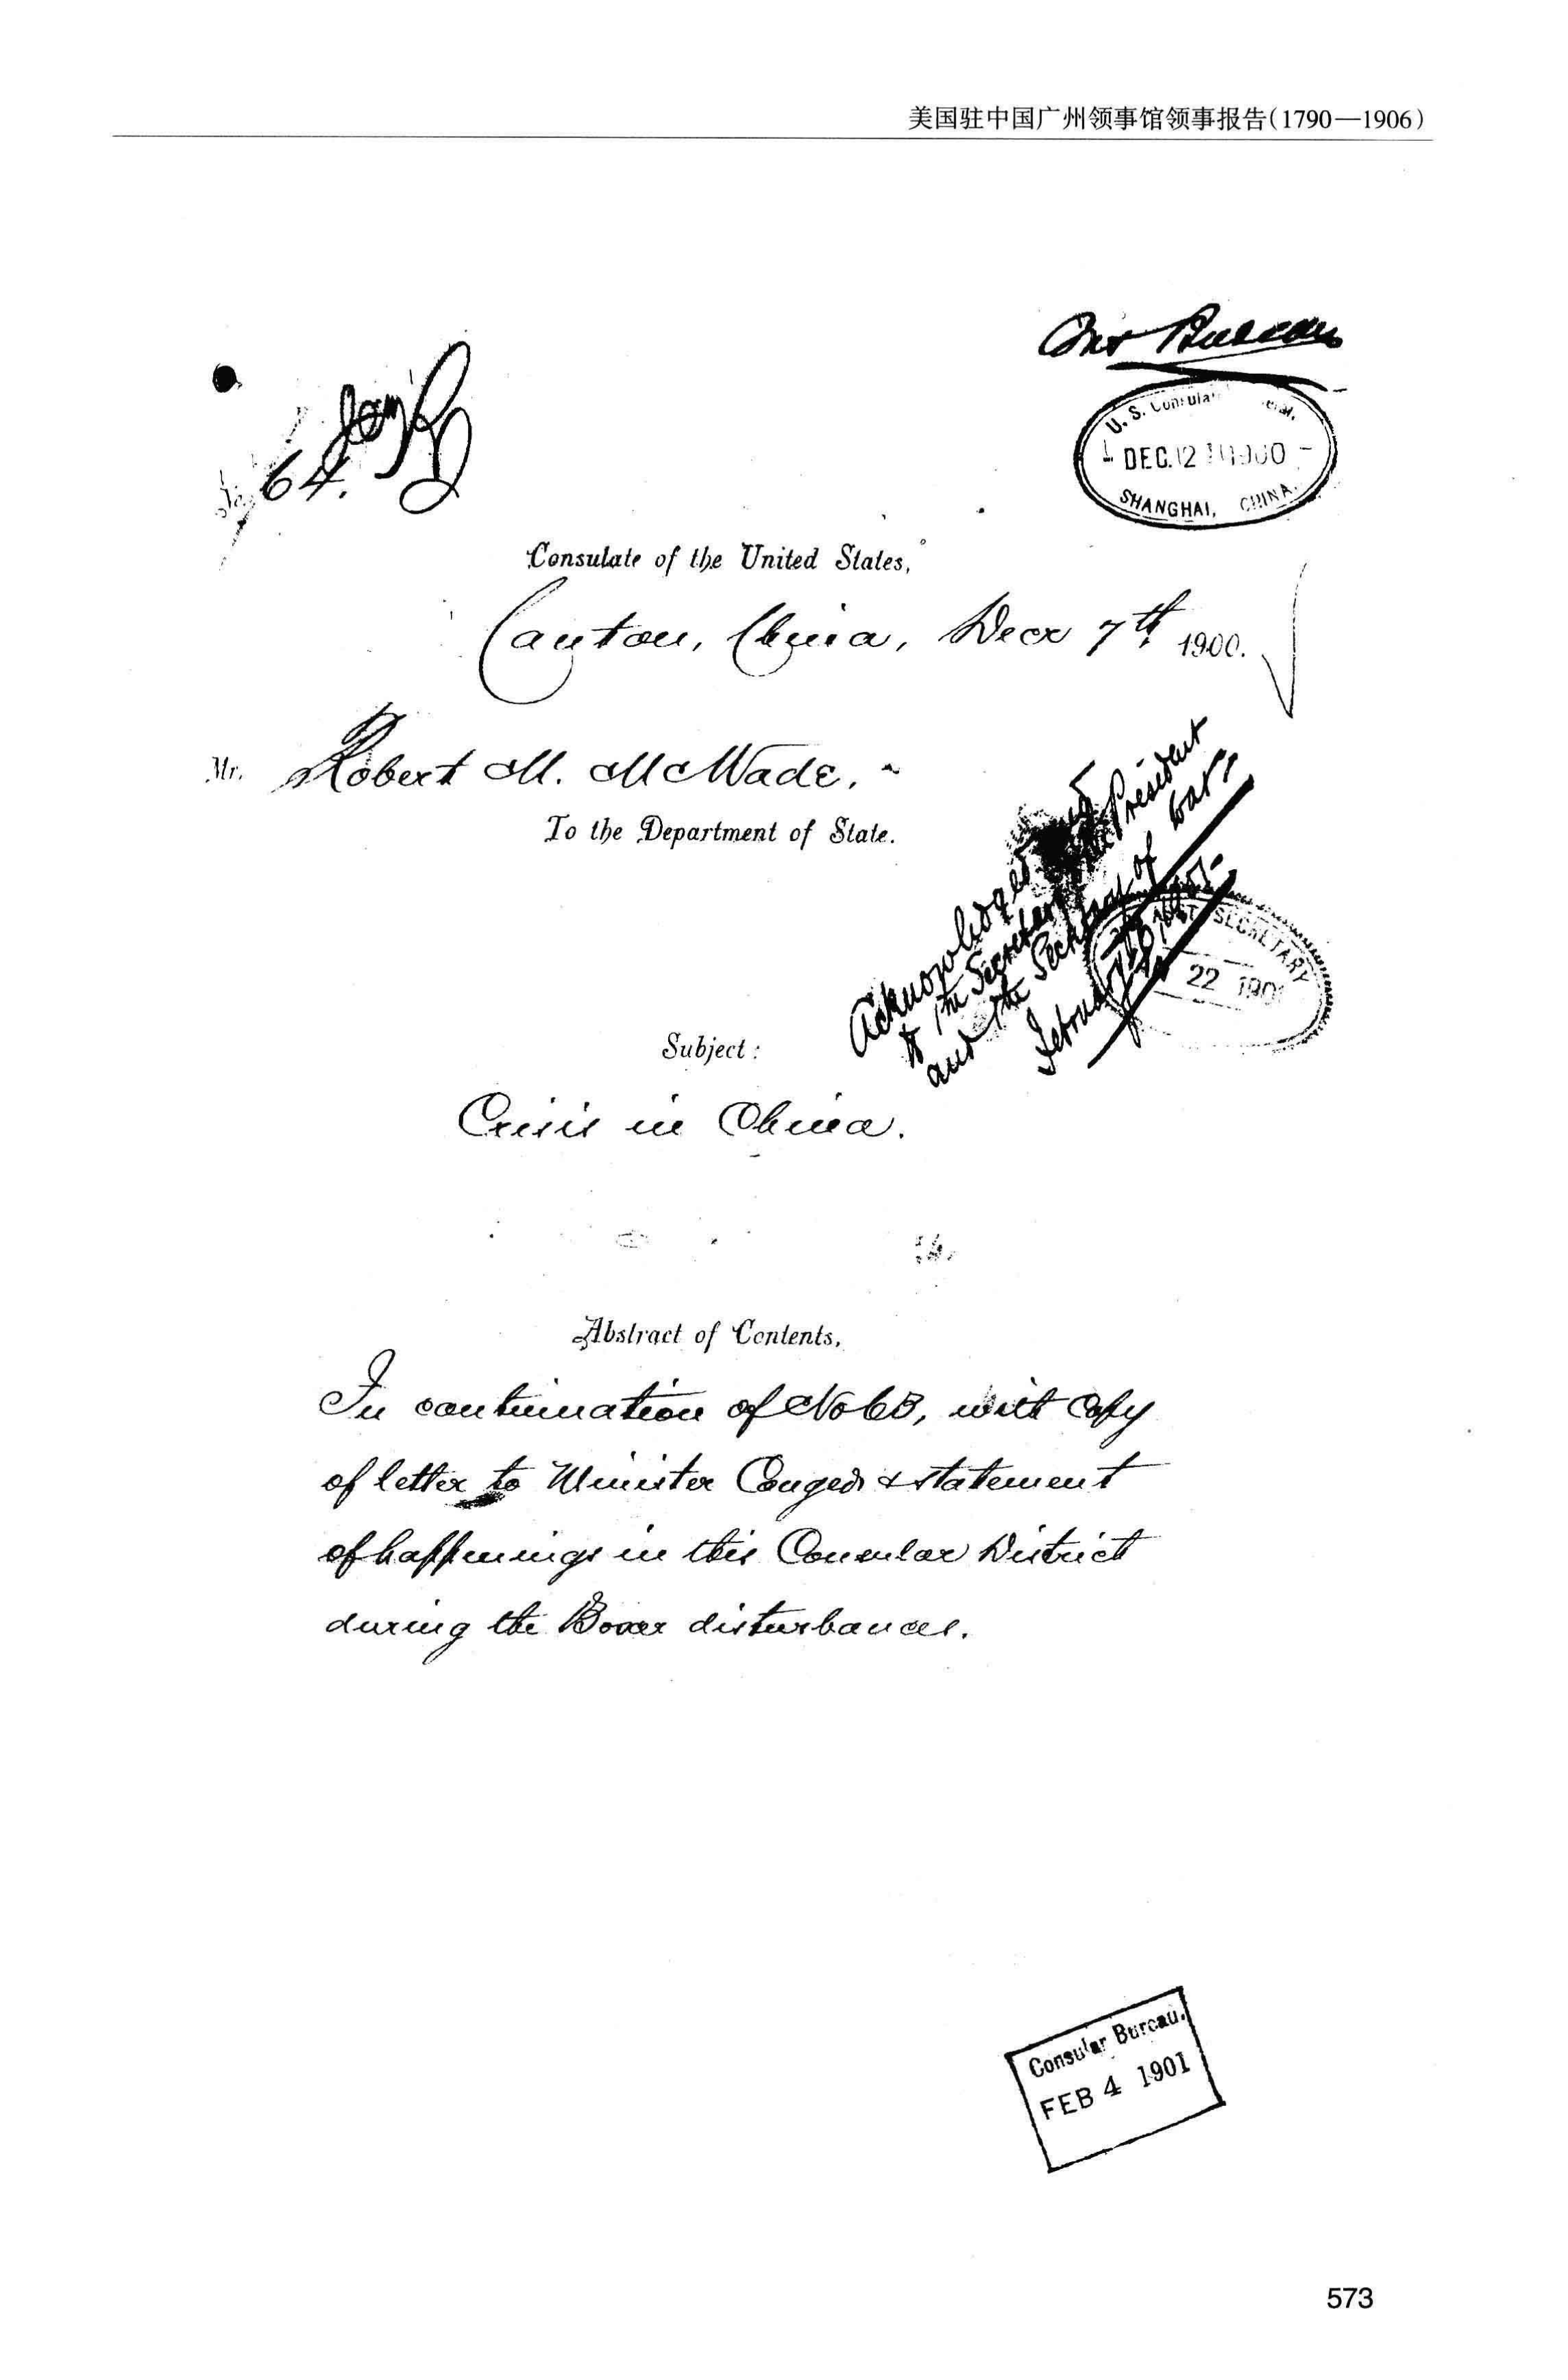 美国驻中国广州领事馆领事报告(1790—1906)
Bureau
U. S. Consula
DEC. 12 1900
SHANGHAI, CHINA.
No. 64.
Consulate of the United States,
Canton, China, Decr 7th, 1900.
Mr. Robert M. McWade,
To the Department of State.
Acknowledged President
to the Secretary
and the Secretary of War.
SECRETARY
22 190
Subject:
Crisis in China.
Abstract of Contents,
In continuation of No 63, with Copy
of letter to Minister Conger & statement
of happenings in this Consular District
during the Boxer disturbances.
Consular Bureau.
FEB 4 1901
573